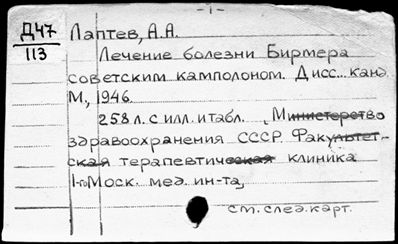 -1-
Д47
113
Лаптев, А.А.
Лечение болезни Бирмера
советским камполоном. Дисс... канд.
М., 1946.
258 л. с илл. и табл. , Министерство
здравоохранения СССР. Факультет-
ская терапевтическая клиника
1-го Моск. мед. ин-та,
см. след. карт.